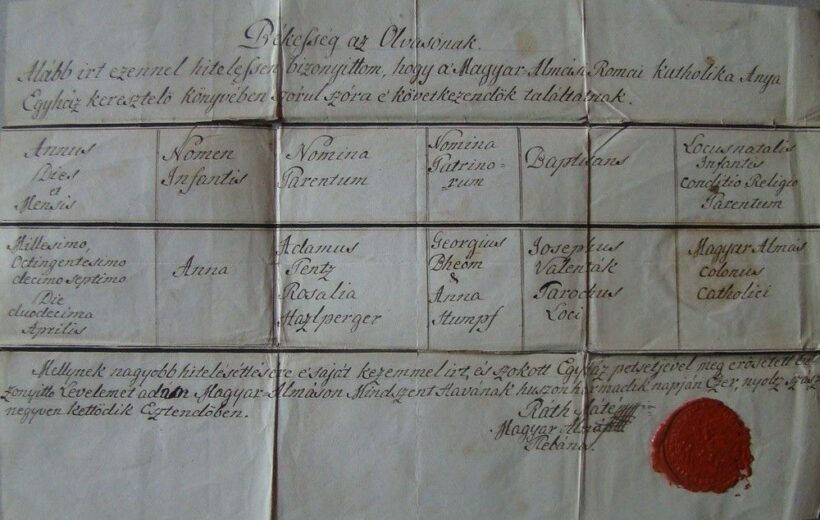 Békesség az Olvasónak.
Alább irt ezennel hitelessen bizonyittom, hogy a Magyar Almási Romai Katholika Anya
Egyház keresztelő könyvében szórul szóra e következendők találtatnak.
Annus
Dies
et
Mensis
Nomen
Infantis
Nomina
Parentum
Nomina
Patrino-
rum
Baptisans
Locus natalis
Infantis
conditio Religio
Parentum
Millesimo,
Octingentesimo
decimo septimo
Die
duodecima
Aprilis
Anna
Adamus
Pentz
Rosalia
Hazlperger
Georgius
Bheom
&
Anna
Stumpf
Josephus
Valenták
Parochus
Loci
Magyar Almás
Colonus
Catholici
Mellynek nagyobb hiteleséttésére e saját kezemmel irt, és szokott Egyház petsetjével meg erősetett bi-
zonyitto Levelemet adám Magyar-Almáson Mindszent Havának huszon harmadik napján Ezer, nyoltz száz
negyven kettödik Eztendöben.
Ráth Máté
Magyar Almási
Plebános.